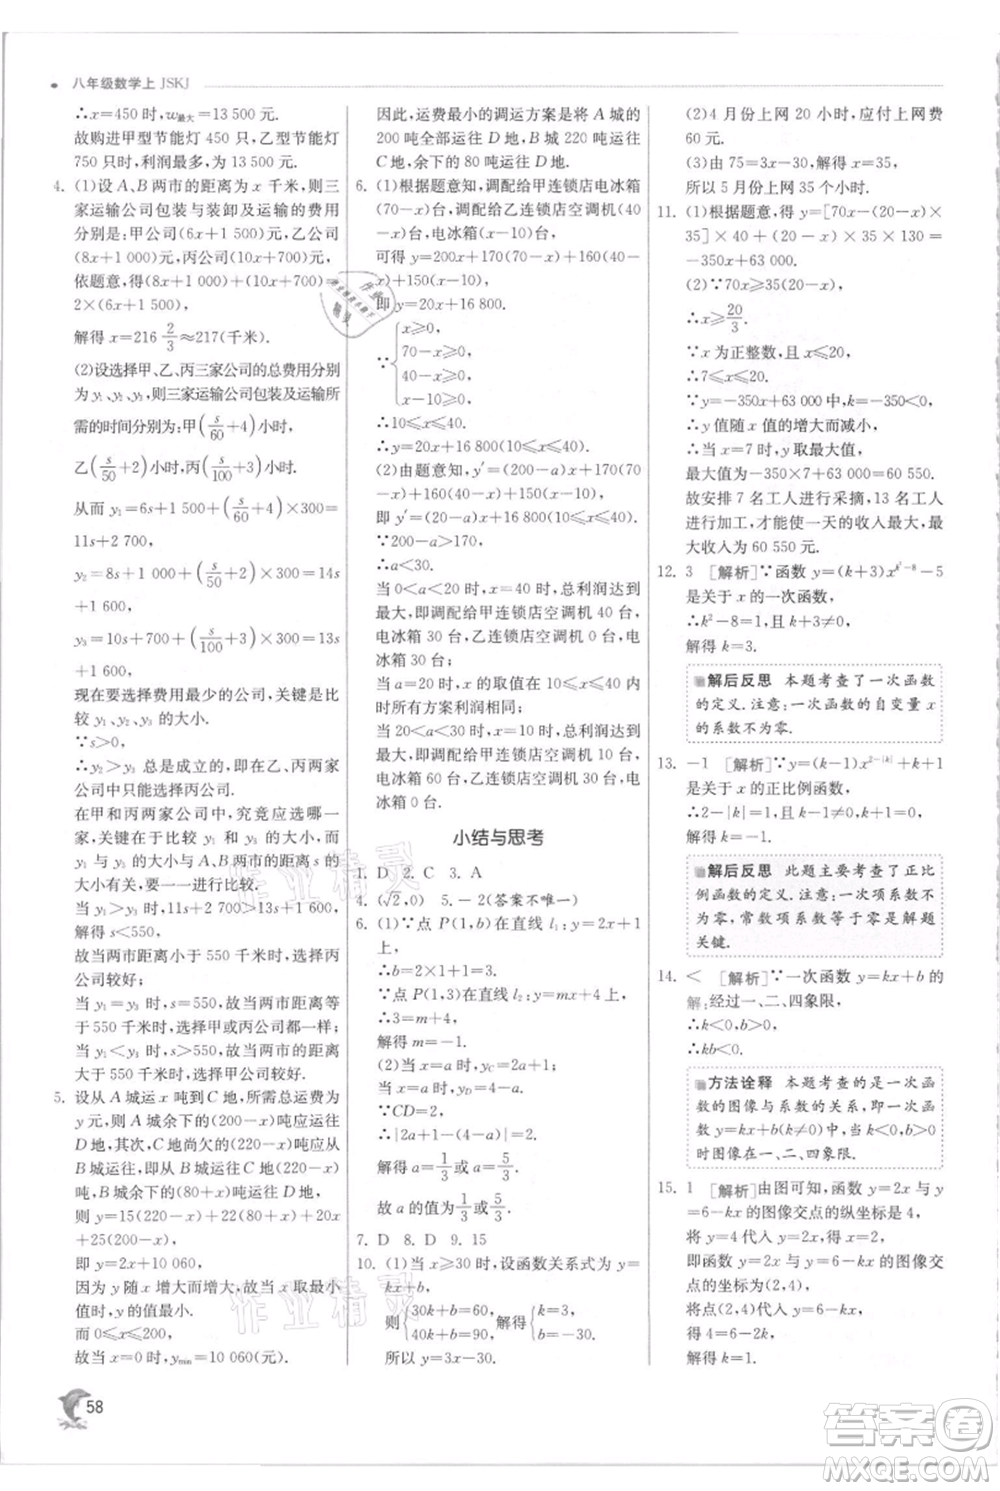 八年级数学上 JSKJ
∴x=450时,w最大=13 500(元).
故购进甲型节能灯 450 只,乙型节能灯
750只时,利润最多,为 13 500元.
4. (1)设A、B两市的距离为x千米,则三
家运输公司包装与装卸及运输的费用
分别是:甲公司(6x+1 500)元,乙公司
(8x+1 000)元,丙公司(10x+700)元,
依题意,得(8x+1 000)+(10x+700)=
2×(6x+1 500),
解得 x=216 2/3≈217(千米).
(2)设选择甲、乙、丙三家公司的总费用分别
为y₁、y₂、y₃,则三家运输公司包装及运输所
需的时间分别为:甲(s/60+4)小时,
乙(s/50+2)小时,丙(s/100+3)小时.
从而 y₁=6s+1 500+(s/60+4)×300=
11s+2 700,
y₂=8s+1 000+(s/50+2)×300=14s
+1 600,
y₃=10s+700+(s/100+3)×300=13s
+1 600,
现在要选择费用最少的公司,关键是比
较 y₁、y₂、y₃的大小.
∵s>0,
∴y₂>y₃ 总是成立的,即在乙、丙两家
公司中只能选择丙公司.
在甲和丙两家公司中,究竟应选哪一
家,关键在于比较 y₁ 和 y₃ 的大小,而
y₁ 与 y₃ 的大小与A、B两市的距离 s 的
大小有关,要一一进行比较.
当 y₁>y₃时,11s+2 700>13s+1 600,
解得 s<550,
故当两市距离小于 550 千米时,选择丙
公司较好;
当 y₁=y₃时,s=550,故当两市距离等
于550千米时,选择甲或丙公司都一样;
当 y₁<y₃时,s>550,故当两市距离
大于 550千米时,选择甲公司较好.
5. 设从A城运x吨到C地,所需总运费为
y元,则A城余下的(200-x)吨应运往
D地,其次,C地尚欠的(220-x)吨应从
B城运往,即从B城运往C地(220-x)
吨,B城余下的(80+x)吨运往D地,
则 y=15(220-x)+22(80+x)+20x
+25(200-x),
即 y=2x+10 060,
因为 y 随x增大而增大,故当x取最小
值时,y的值最小.
而 0≤x≤200,
故当 x=0时,ymin=10 060(元).
因此,运费最小的调运方案是将 A 城的
200吨全部运往 D 地,B城 220吨运往
C地,余下的80吨运往D地.
6. (1)根据题意知,调配给甲连锁店电冰箱
(70-x)台,调配给乙连锁店空调机(40-x)台,
电冰箱(x-10)台,
可得 y=200x+170(70-x)+160(40-
x)+150(x-10),
即 y=20x+16 800.
∵{x≥0,
70-x≥0,
40-x≥0,
x-10≥0,
∴10≤x≤40.
∴y=20x+16 800(10≤x≤40).
(2)由题意知,y′=(200-a)x+170(70
-x)+160(40-x)+150(x-10),
即 y′=(20-a)x+16 800.
∵200-a>170,
∴a<30.
当 0<a<20 时,x=40时,总利润达到
最大,即调配给甲连锁店空调机 40 台,
电冰箱 30 台,乙连锁店空调机 0 台,电
冰箱 30台;
当 a=20 时,x 的取值在 10≤x≤40
内所有方案利润相同;
当 20<a<30 时,x=10,总利润达到
最大,即调配给甲连锁店空调机10台,
电冰箱60台,乙连锁店空调机30台,电
冰箱 0 台.
小结与思考
1. D 2. C 3. A
4. (√2,0) 5. -2(答案不唯一)
6. (1)∵点 P(1,b)在直线 l₁:y=2x+1
上,
∴b=2×1+1=3.
∵点 P(1,3)在直线 l₂:y=mx+4上,
∴3=m+4,
解得 m=-1.
(2)当x=a时,yC=2a+1;
当x=a时,yD=4-a.
∵CD=2,
∴|2a+1-(4-a)|=2,
解得 a=1/3或 a=5/3.
故 a 的值为1/3或5/3.
7. D 8. D 9. 15
10. (1)当x≥30时,设函数关系式为 y=
kx+b,
则{30k+b=60, 40k+b=90, 解得{k=3, b=-30.
所以 y=3x-30.
(2)4 月份上网 20 小时,应付上网费
60元.
(3)由 75=3x-30,解得 x=35,
所以5月份上网35个小时.
11. (1)根据题意,得 y=[70x-(20-x)×
35]×40+(20-x)×35×130=
-350x+63 000.
(2)∵70x≥35(20-x),
∴x≥20/3.
∵x 为正整数,且 x≤20,
∴7≤x≤20.
∵y=-350x+63 000中k=-350<0,
∴y 值随 x 值的增大而减小,
∴当 x=7 时,y取最大值,
最大值为-350×7+63 000=60 550.
故安排 7 名工人进行采摘,13 名工人
进行加工,才能使一天的收入最大,最
大收入为 60 550 元.
12. 3 [解析]∵函数 y=(k+3)x^(k²-8)-5
是关于 x 的一次函数,
∴k²-8=1,且k+3≠0,
解得 k=3.
解后反思 本题考查了一次函数
的定义.注意:一次函数的自变量 x
的系数不为零.
13. -1 [解析]∵y=(k-1)x^(2-|k|)+k+1
是关于x的正比例函数,
∴2-|k|=1,且k-1≠0,k+1=0,
解得 k=-1.
解后反思 此题主要考查了正比
例函数的定义.注意:一次项系数不
为零,常数项系数等于零是解题
关键.
14. < [解析]∵一次函数 y=kx+b 的图
解:经过一、二、四象限,
∴k<0,b>0,
∴kb<0.
方法诠释 本题考查的是一次函
数的图像与系数的关系,即一次函
数y=kx+b(k≠0)中,当k<0,b>0
时图像在一、二、四象限.
15. 1 [解析]由图可知,函数 y=2x 与
y=6-kx的图像交点的纵坐标是 4,
将 y=4代入 y=2x,得 x=2,
即函数 y=2x 与 y=6-kx的图像交点
的坐标为(2,4),
将点(2,4)代入 y=6-kx,得
4=6-2k,
解得 k=1.
58
作业精灵
作业精灵
答案圈
MXQE.COM